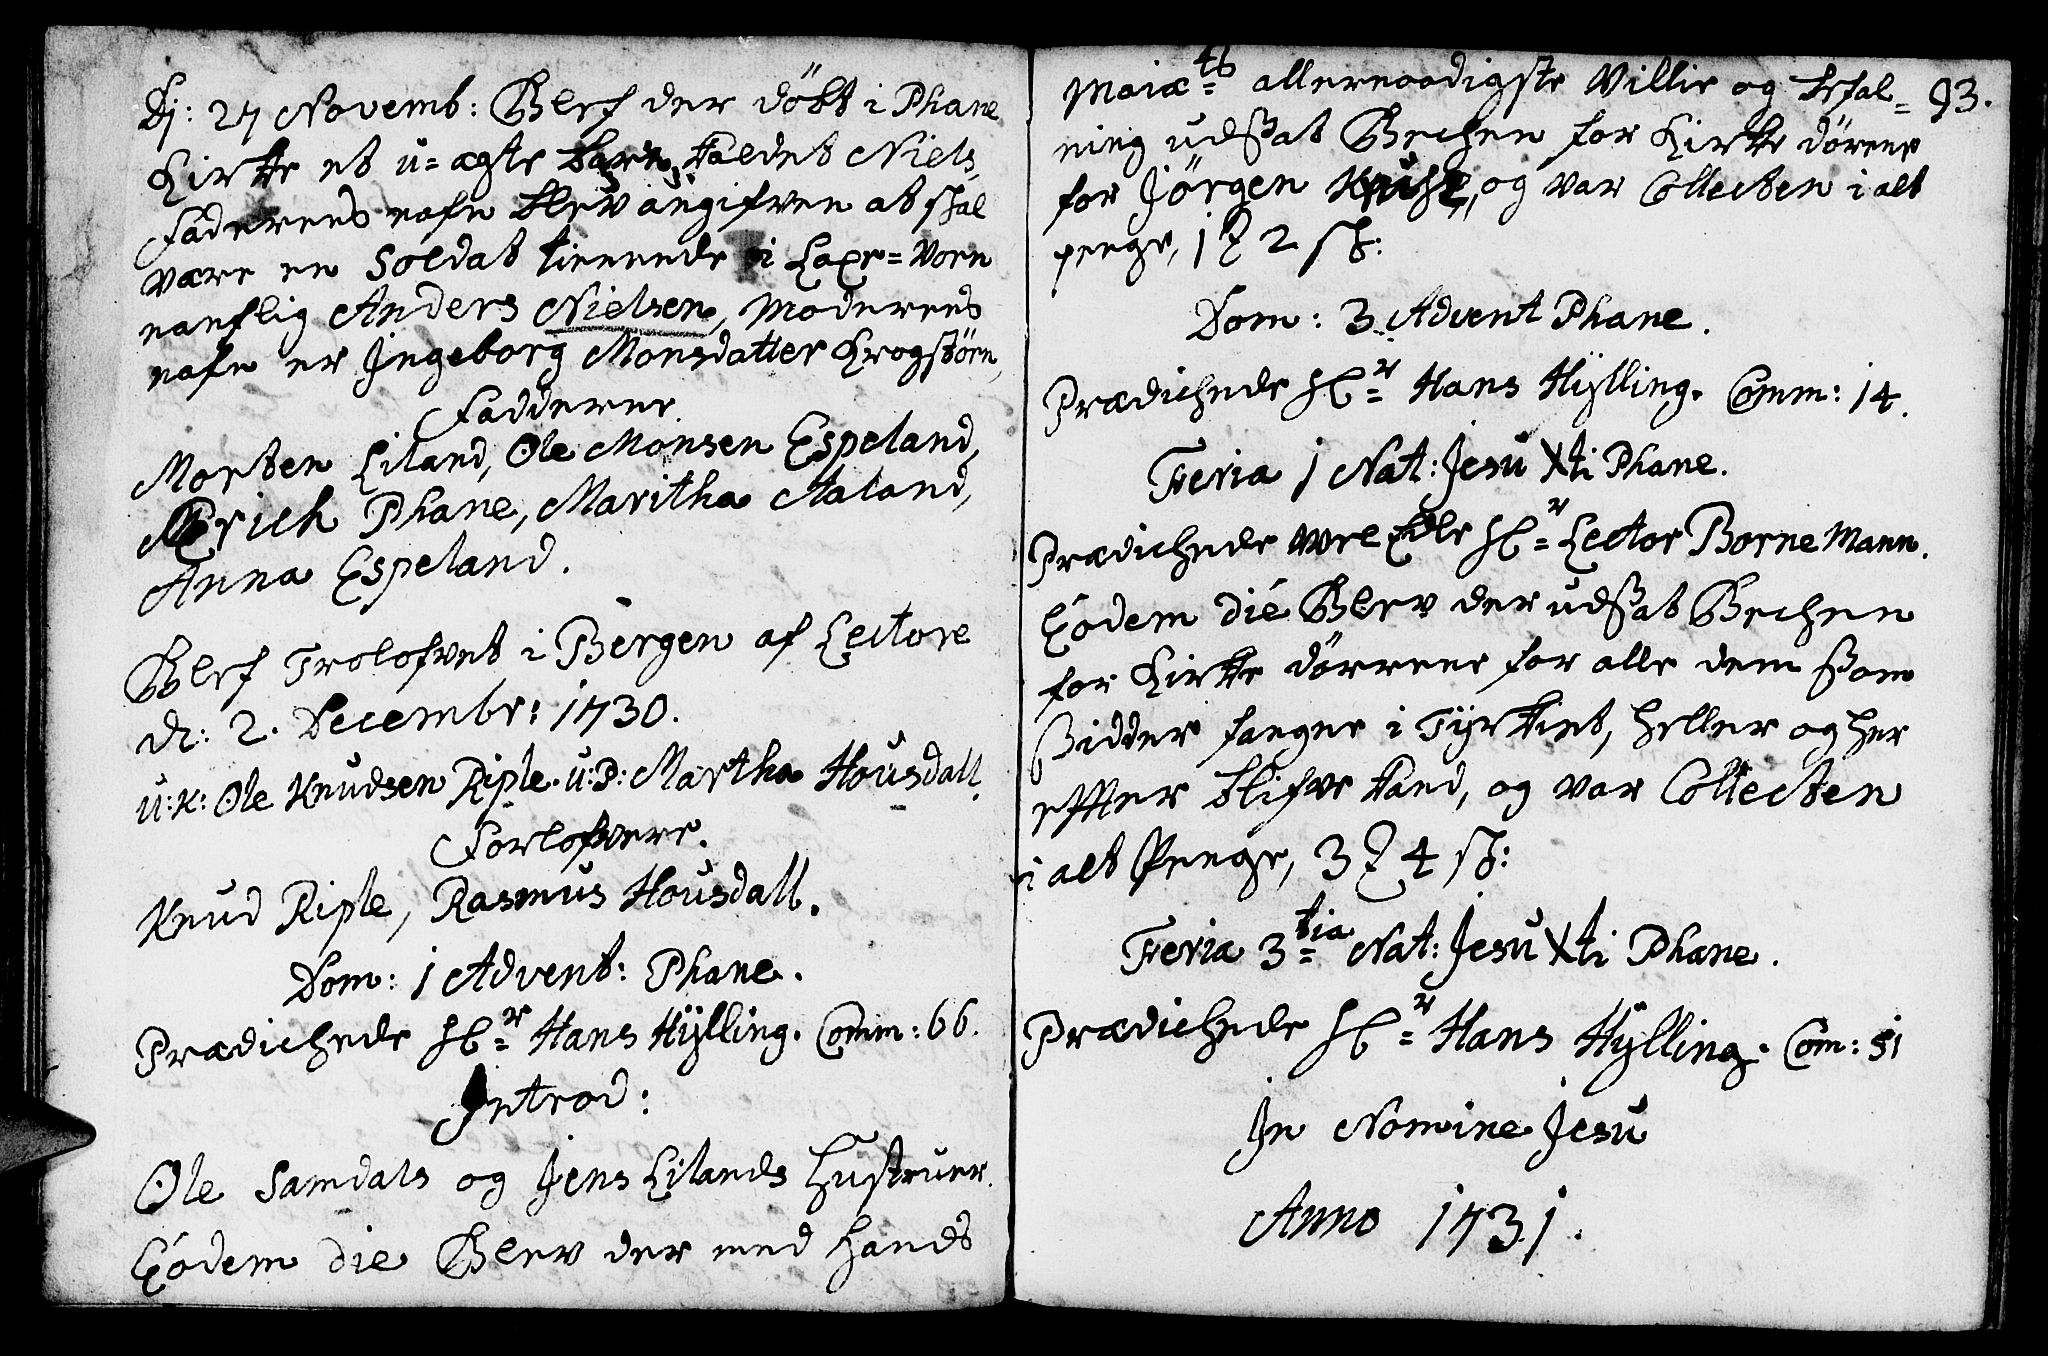 Dj: 27 Novemb: Blef der döbt i Phane
Kirke et u=ægte barn, kaldet Niels,
Faderens nafn blev angifven at skal
være en Soldat tienende i Laxe=Vorn
nanflig Anders Nielsen, Moderens
nafn er Jngeborg Monsdatter Krogstörn,
Fadderne
Morten Liland, Ole Monsen Espeland,
Erich Phane, Maritha Aaland,
Anna Espeland.
Blef Trolofvet i Bergen af Lectore
d: 2. Decembr: 1730.
u:K: Ole Knudsen Riple. u:P: Martha Housdall.
Forlofvere.
Knud Riple, Rasmus Housdall.
Dom: 1 Advent: Phane.
Prædichede Hr Hans Hÿlling. Comm: 66.
Introd:
Ole Samdals og Jens Lilands Hustruer.
Eodem die Blev der med Hands
Maiæts allernaadigste Villie og befal= 93.
ning udsat Bechen for Kirke dörene
for Jörgen Kruse, og var Collecten i alt
penge, 1 2 sk:
Dom: 3 Advent Phane.
Prædichede Hr Hans Hÿlling. Comm: 14.
Feria 1 Nat: Jesu Xti Phane.
Prædichede Vel Edle Hr Lector BorneMann.
Eodem die Blev der udsat Bechen
for Kirke dörrene for alle dem som
sidder fangne i Tÿrkiet, heller og her
effter blifve kand, og var Collecten
i alt Penge, 3 4 sk:
Feria 3tia Nat: Jesu Xti Phane.
Prædichede Hr Hans Hÿlling. Com: 51
Jn Nomine Jesu
Anno 1731.